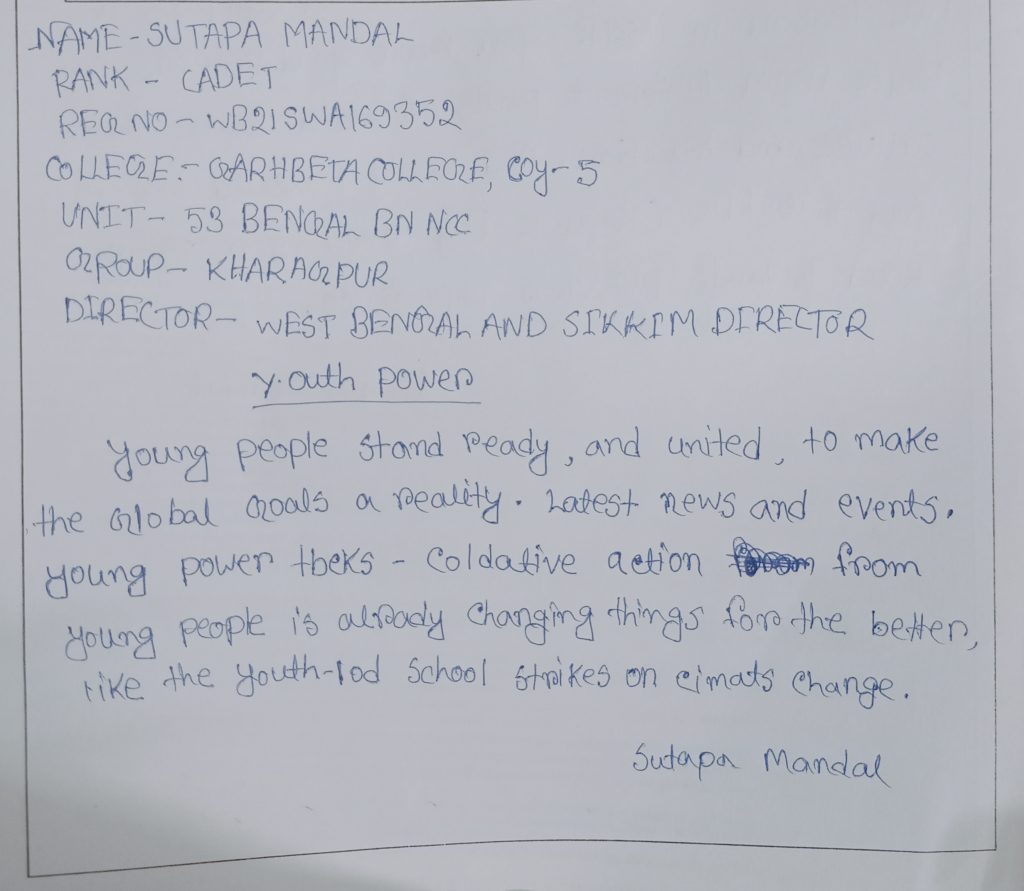 NAME - SUTAPA MANDAL
RANK - CADET
REG NO - WB21SWA169352
COLLEGE:- GARHBETA COLLEGE, COY - 5
UNIT - 53 BENGAL BN NCC
GROUP - KHARAGPUR
DIRECTOR - WEST BENGAL AND SIKKIM DIRECTOR
Youth power
Young people stand ready, and united, to make
the Global Goals a reality. Latest news and events.
young power tbeks - Coldative action from
young people is already changing things for the better,
like the youth-lod School strikes on cimats change.
Sutapa Mandal